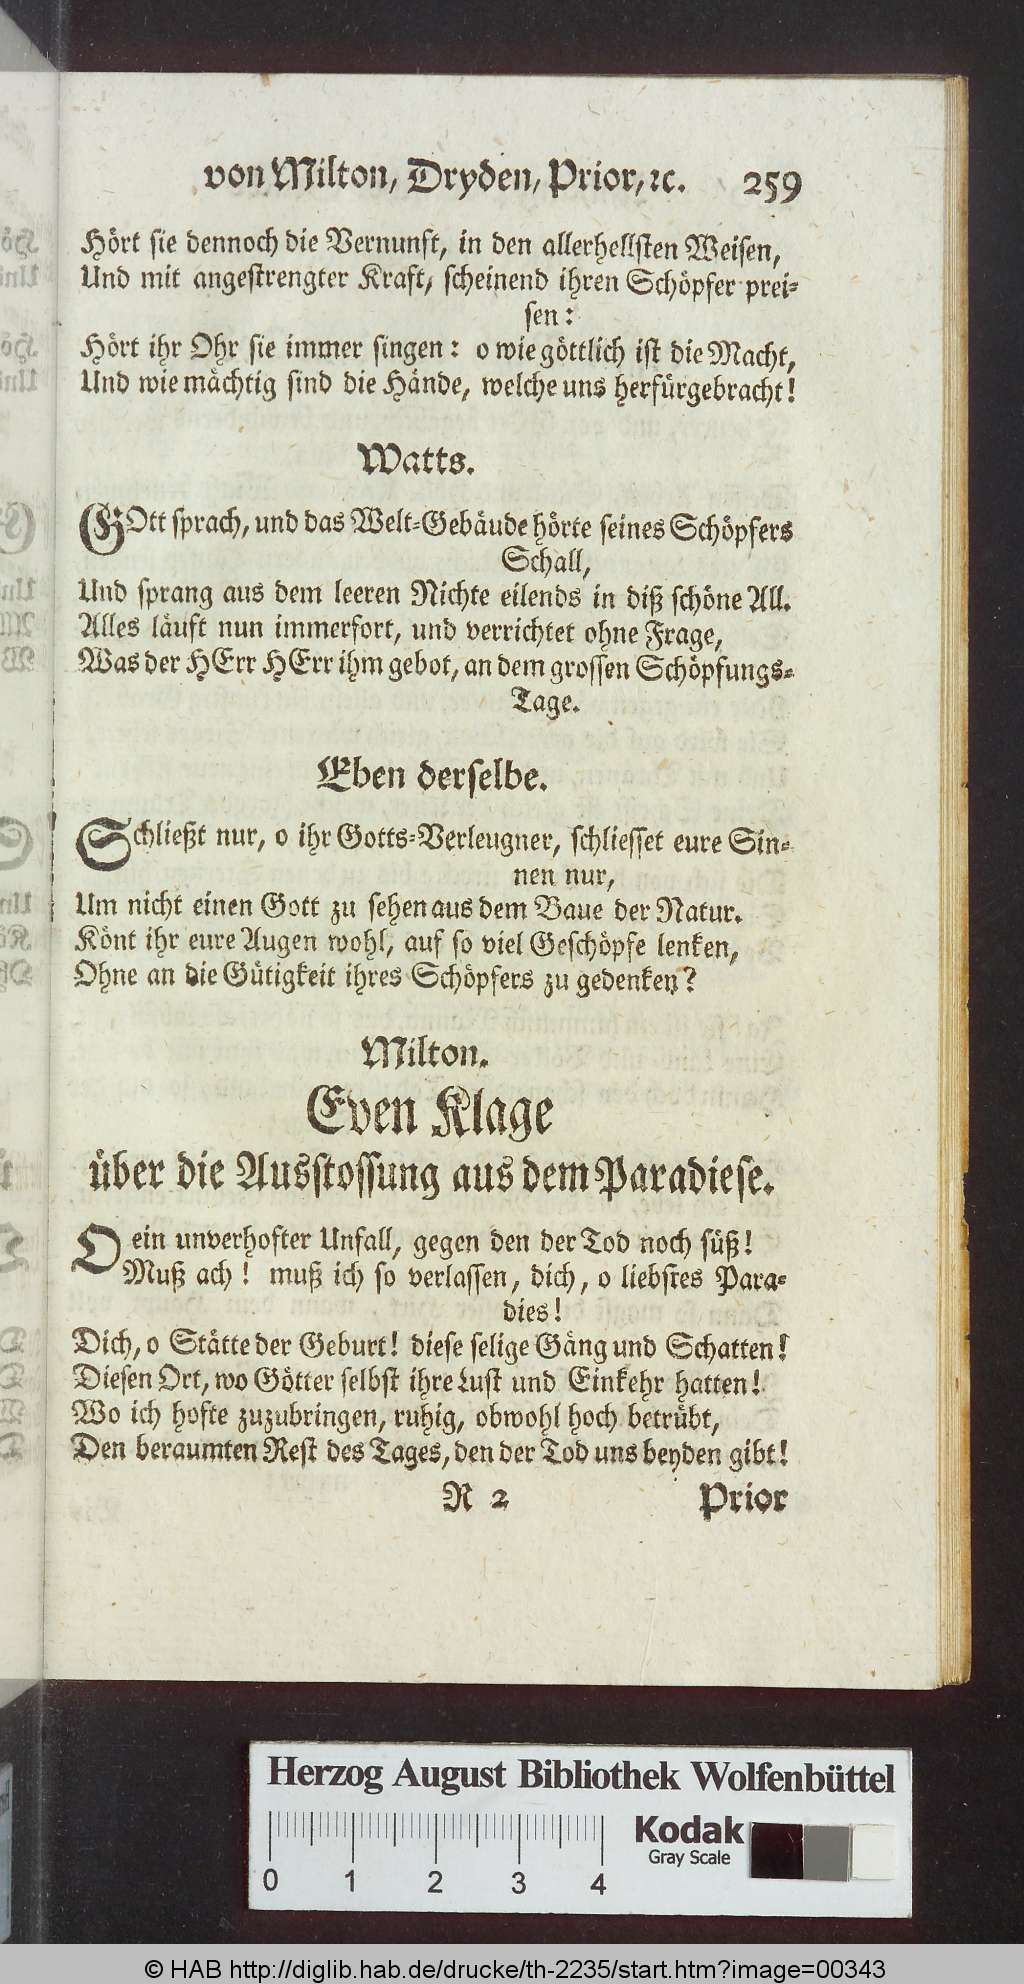 von Milton, Dryden, Prior, ꝛc. 259
Hört sie dennoch die Vernunft, in den allerhellsten Weisen,
Und mit angestrengter Kraft, scheinend ihren Schöpfer prei-
sen:
Hört ihr Ohr sie immer singen: o wie göttlich ist die Macht,
Und wie mächtig sind die Hände, welche uns herfürgebracht!
Watts.
GOtt sprach, und das Welt-Gebäude hörte seines Schöpfers
Schall,
Und sprang aus dem leeren Nichte eilends in diß schöne All.
Alles läuft nun immerfort, und verrichtet ohne Frage,
Was der HErr HErr ihm gebot, an dem grossen Schöpfungs-
Tage.
Eben derselbe.
Schließt nur, o ihr Gotts-Verleugner, schliesset eure Sin-
nen nur,
Um nicht einen Gott zu sehen aus dem Baue der Natur.
Könt ihr eure Augen wohl, auf so viel Geschöpfe lenken,
Ohne an die Gütigkeit ihres Schöpfers zu gedenken?
Milton.
Even Klage
über die Ausstossung aus dem Paradiese.
O ein unverhofter Unfall, gegen den der Tod noch süß!
Muß ach! muß ich so verlassen, dich, o liebstes Para-
dies!
Dich, o Stätte der Geburt! diese selige Gäng und Schatten!
Diesen Ort, wo Götter selbst ihre Lust und Einkehr hatten!
Wo ich hofte zuzubringen, ruhig, obwohl hoch betrübt,
Den beraumten Rest des Tages, den der Tod uns beyden gibt!
R 2 Prior
Herzog August Bibliothek Wolfenbüttel
Kodak
Gray Scale
0 1 2 3 4
© HAB http://diglib.hab.de/drucke/th-2235/start.htm?image=00343